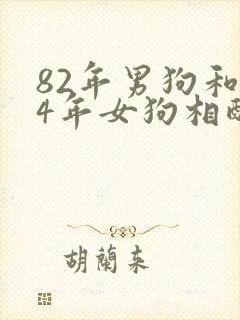 82年男狗和
4年女狗相
胡蘭来